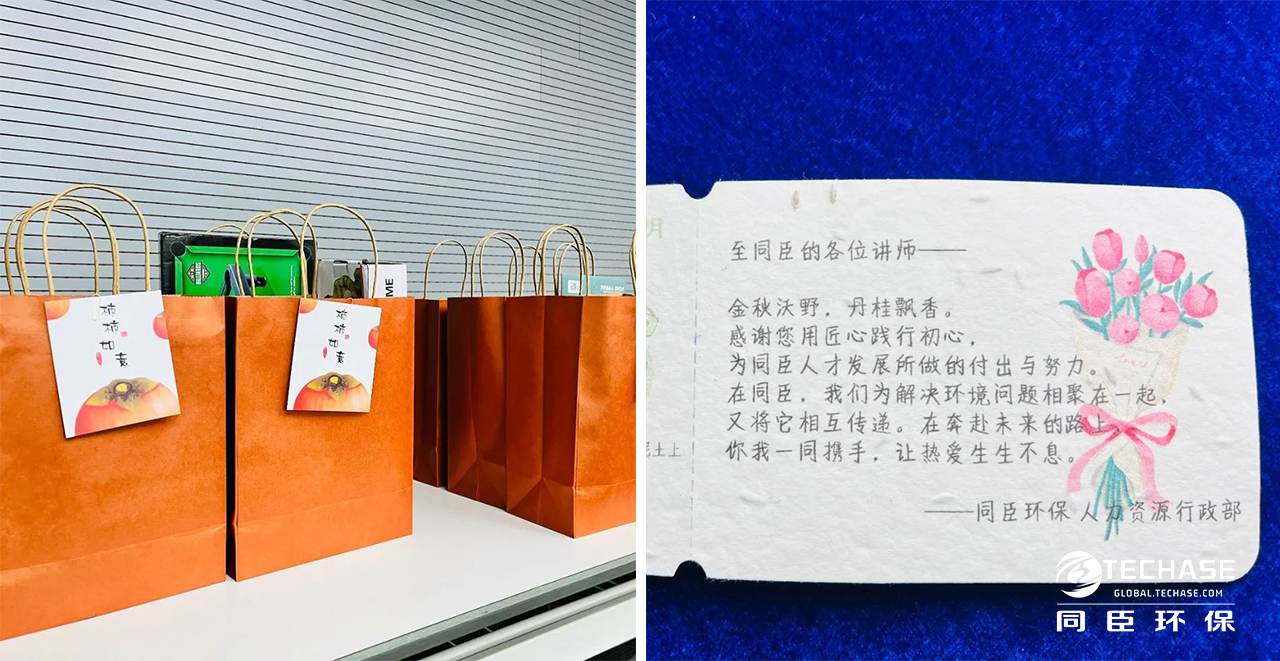 柿
柿
如
意
柿
柿
如
意
ME
月
泥土上
至同臣的各位讲师——
金秋沃野，丹桂飘香。
感谢您用匠心践行初心，
为同臣人才发展所做的付出与努力。
在同臣，我们为解决环境问题相聚在一起，
又将它相互传递。在奔赴未来的路上，
你我一同携手，让热爱生生不息。
——同臣环保 人力资源行政部
TECHASE
GLOBAL.TECHASE.COM
同臣环保